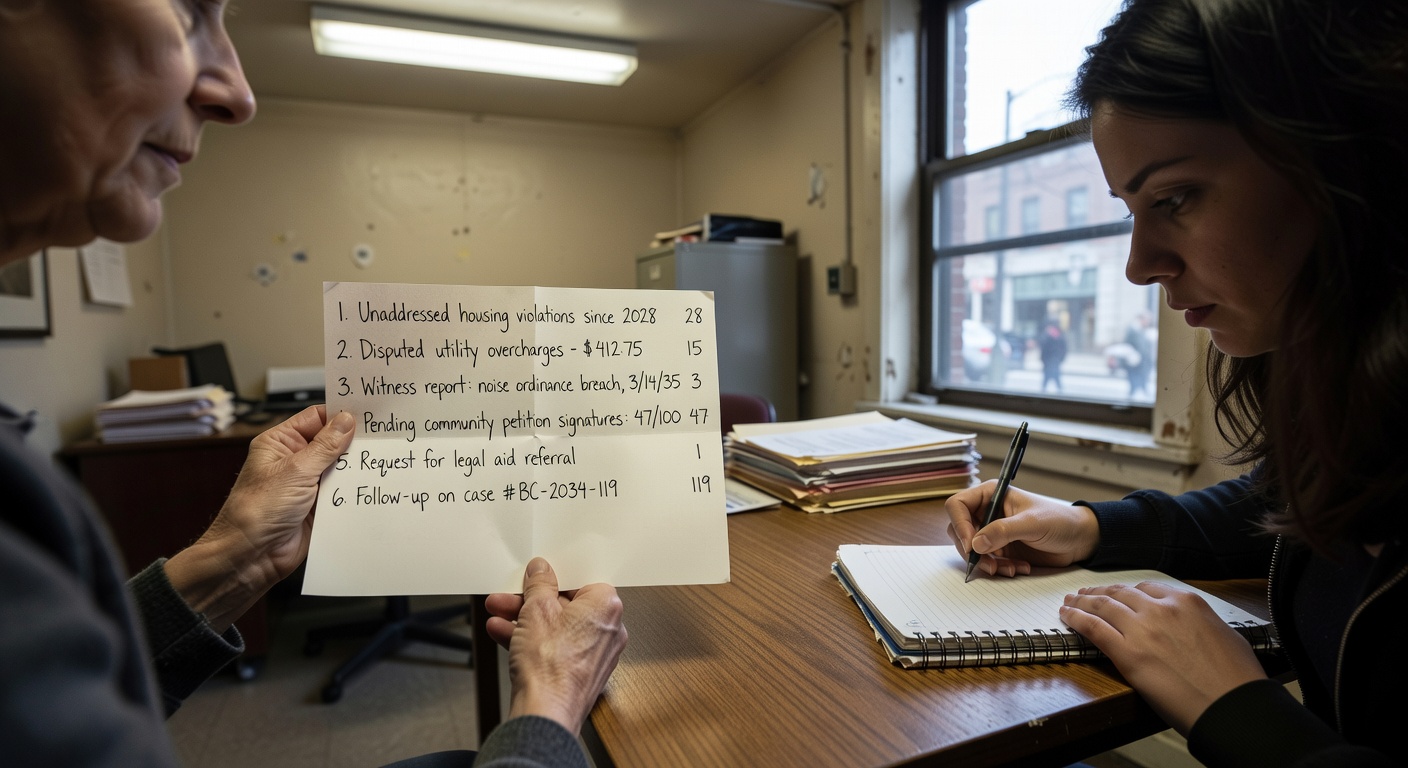 1. Unaddressed housing violations since 2028 28
2. Disputed utility overcharges - $412.75 15
3. Witness report: noise ordinance breach, 3/14/35 3
Pending community petition signatures: 47/100 47
5. Request for legal aid referral 1
6. Follow-up on case #BC-2034-119 119